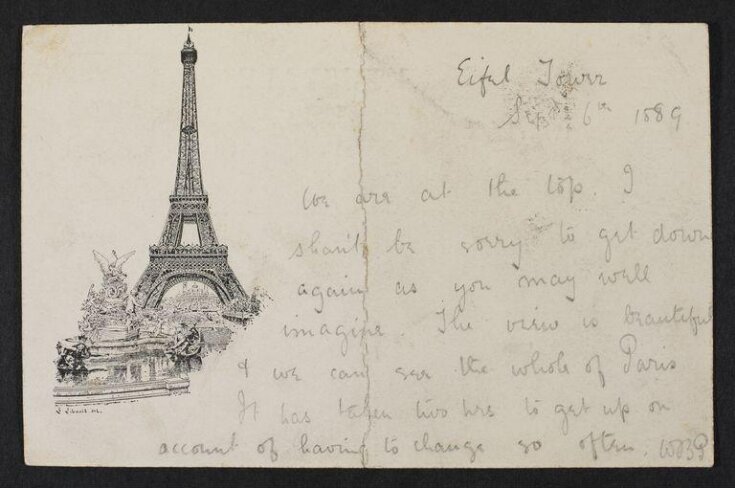 Eifel Tower
Sept 6th 1889
We are at the top. I
shan't be sorry to get down
again as you may well
imagine. The view is beautiful
& we can see the whole of Paris
It has taken two hrs to get up on
account of having to change so often. WBP